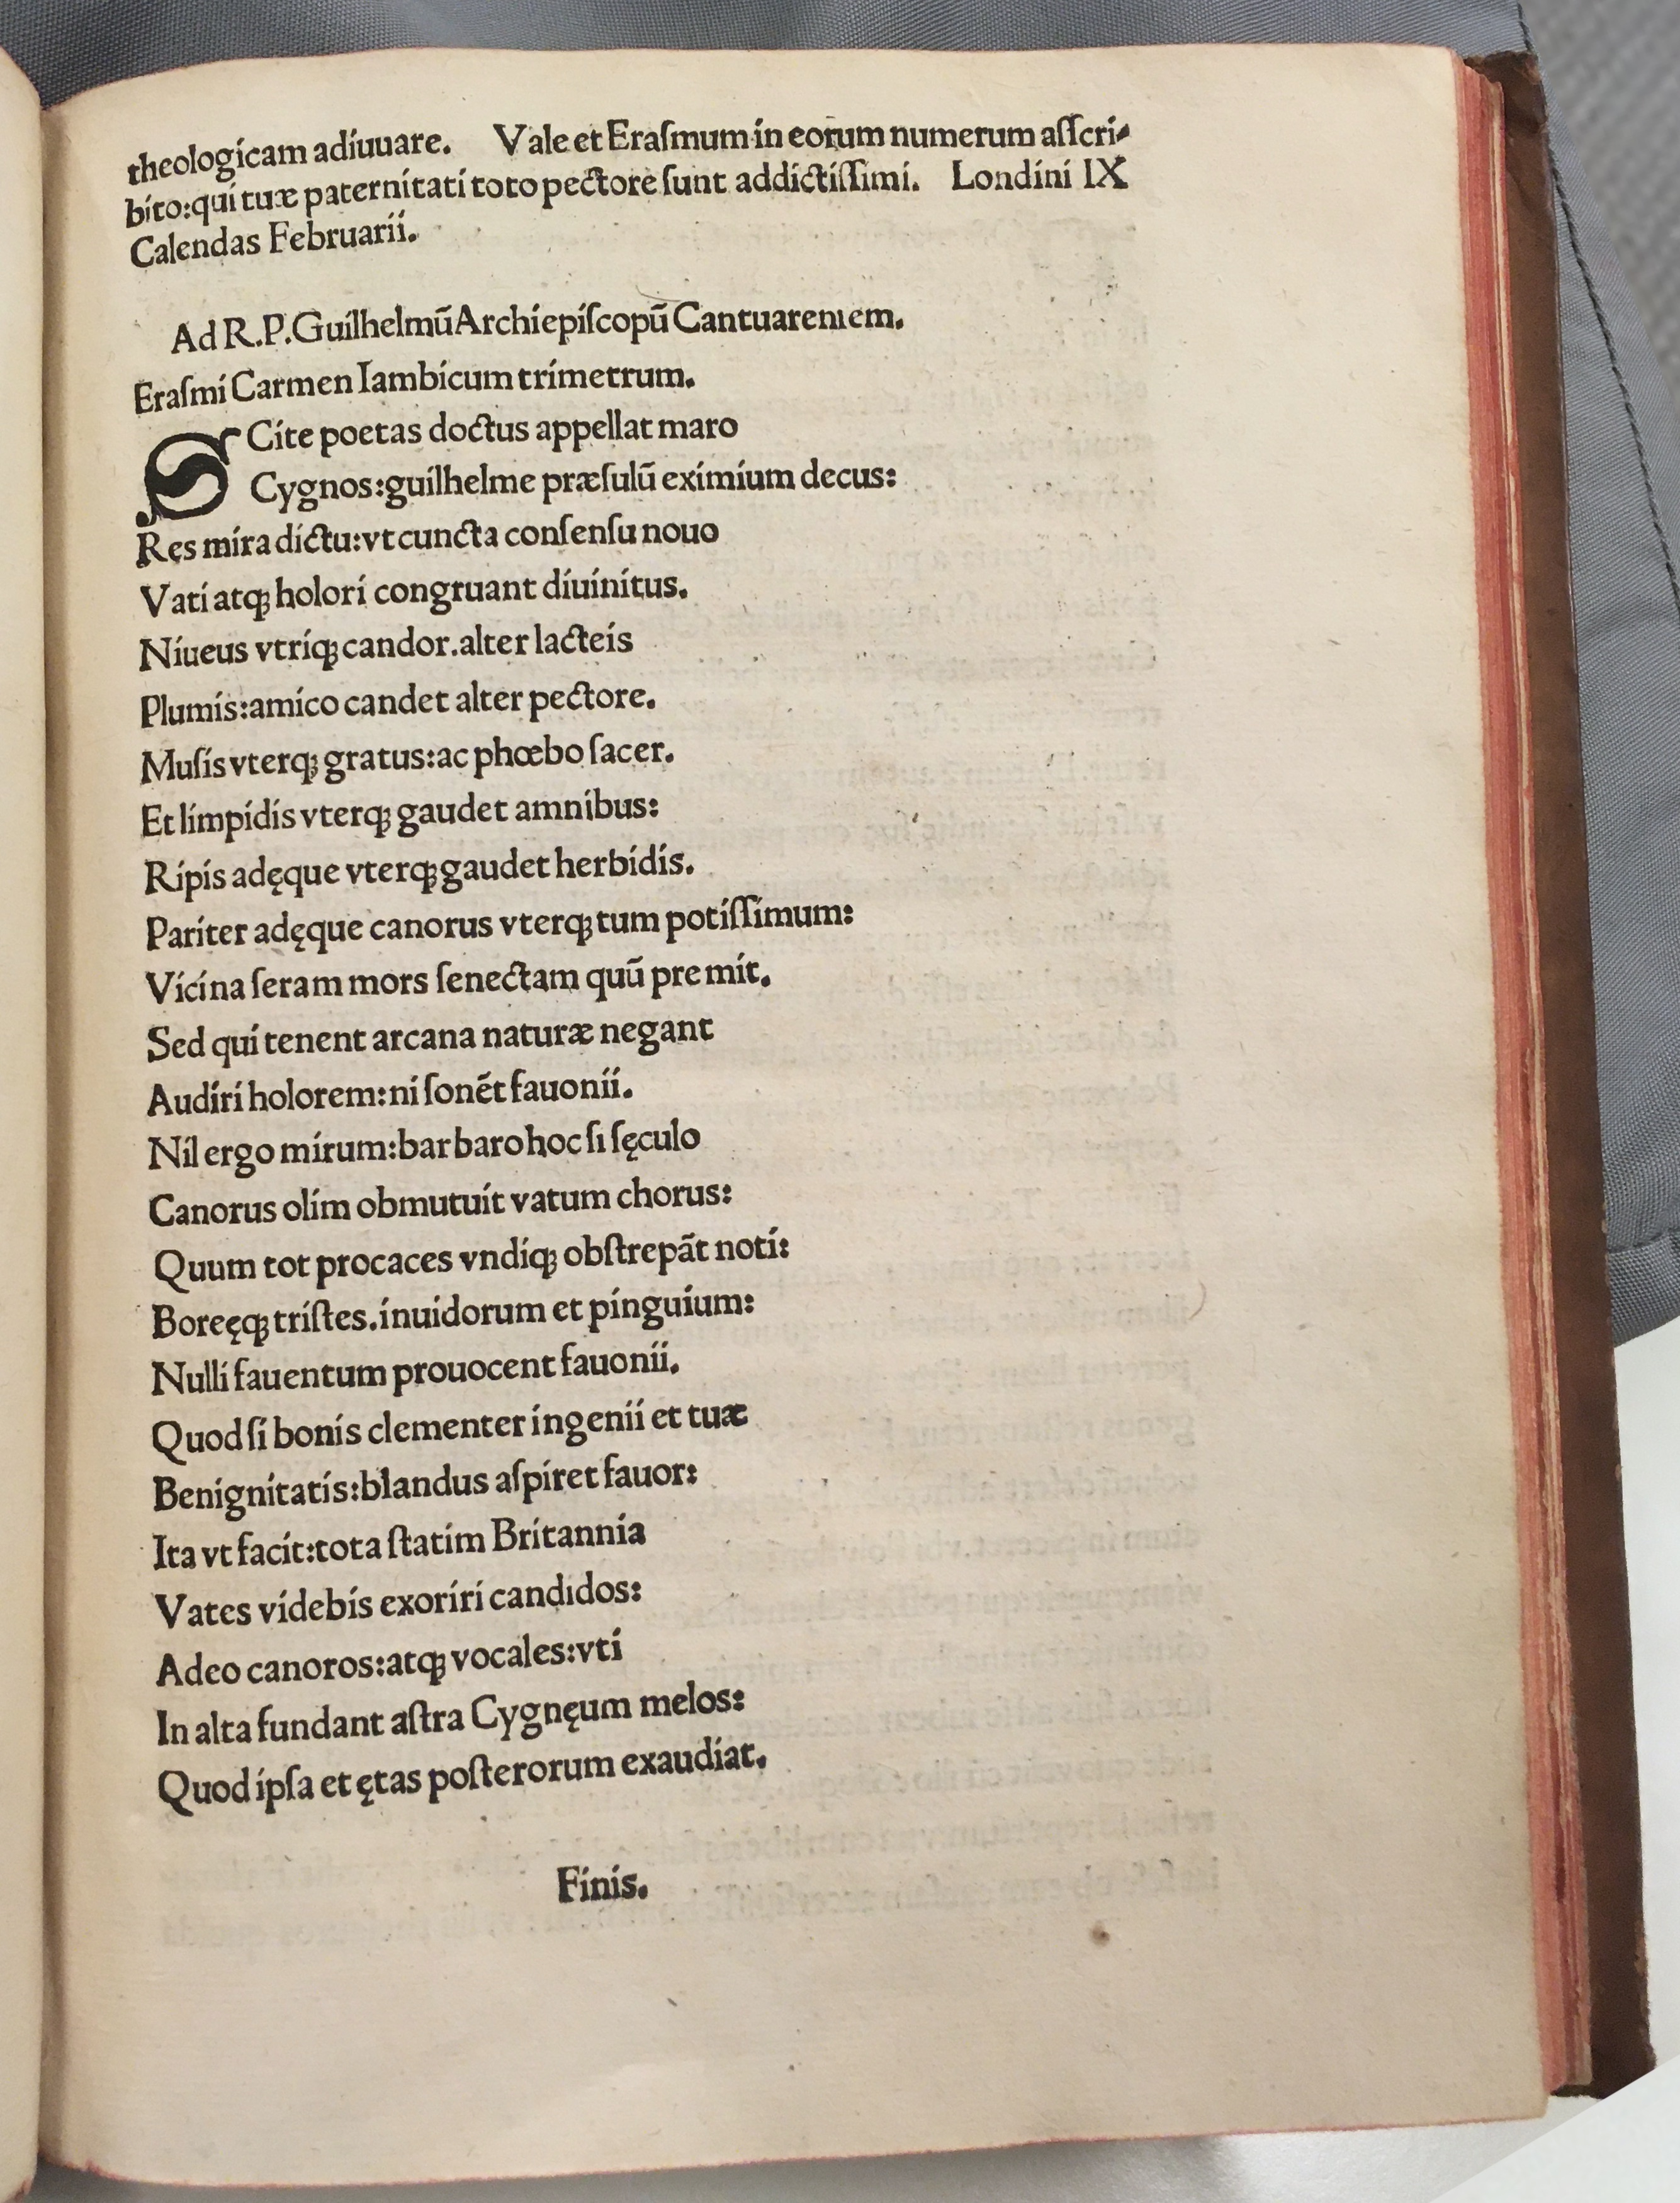 theologicam adiuuare. Vale et Eraſmum in eorum numerum aſſcri-
bito:qui tuæ paternitati toto pectore ſunt addictiſſimi. Londini IX
Calendas Februarii.
Ad R.P.Guilhelmū Archiepiſcopū Cantuareniem.
Eraſmi Carmen Iambicum trimetrum.
SCite poetas doctus appellat maro
Cygnos:guilhelme præſulū eximium decus:
Res mira dictu:vt cuncta conſenſu nouo
Vati atqꝫ holori congruant diuinitus.
Niueus vtriqꝫ candor.alter lacteis
Plumis:amico candet alter pectore.
Muſis vterqꝫ gratus:ac phœbo ſacer.
Et limpidis vterqꝫ gaudet amnibus:
Ripis adęque vterqꝫ gaudet herbidis.
Pariter adęque canorus vterqꝫ tum potiſſimum:
Vicina ſeram mors ſenectam quū premit.
Sed qui tenent arcana naturæ negant
Audiri holorem:ni ſonēt fauonii.
Nil ergo mirum:barbaro hoc ſi ſęculo
Canorus olim obmutuit vatum chorus:
Quum tot procaces vndiqꝫ obſtrepāt noti:
Boreęqꝫ triſtes.inuidorum et pinguium:
Nulli fauentum prouocent fauonii.
Quod ſi bonis clementer ingenii et tuæ
Benignitatis:blandus aſpiret fauor:
Ita vt facit:tota ſtatim Britannia
Vates videbis exoriri candidos:
Adeo canoros:atqꝫ vocales:vti
In alta fundant aſtra Cygnęum melos:
Quod ipſa et ętas poſterorum exaudiat.
Finis.